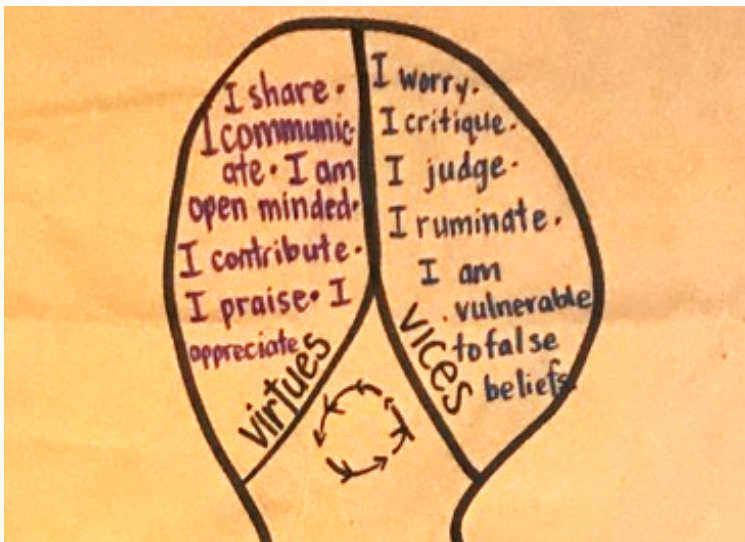 I share.
I communic-
ate. I am
open minded.
I contribute.
I praise. I
appreciate
virtues
I worry.
I critique.
I judge.
I ruminate.
I am
vulnerable
to false
beliefs.
vices